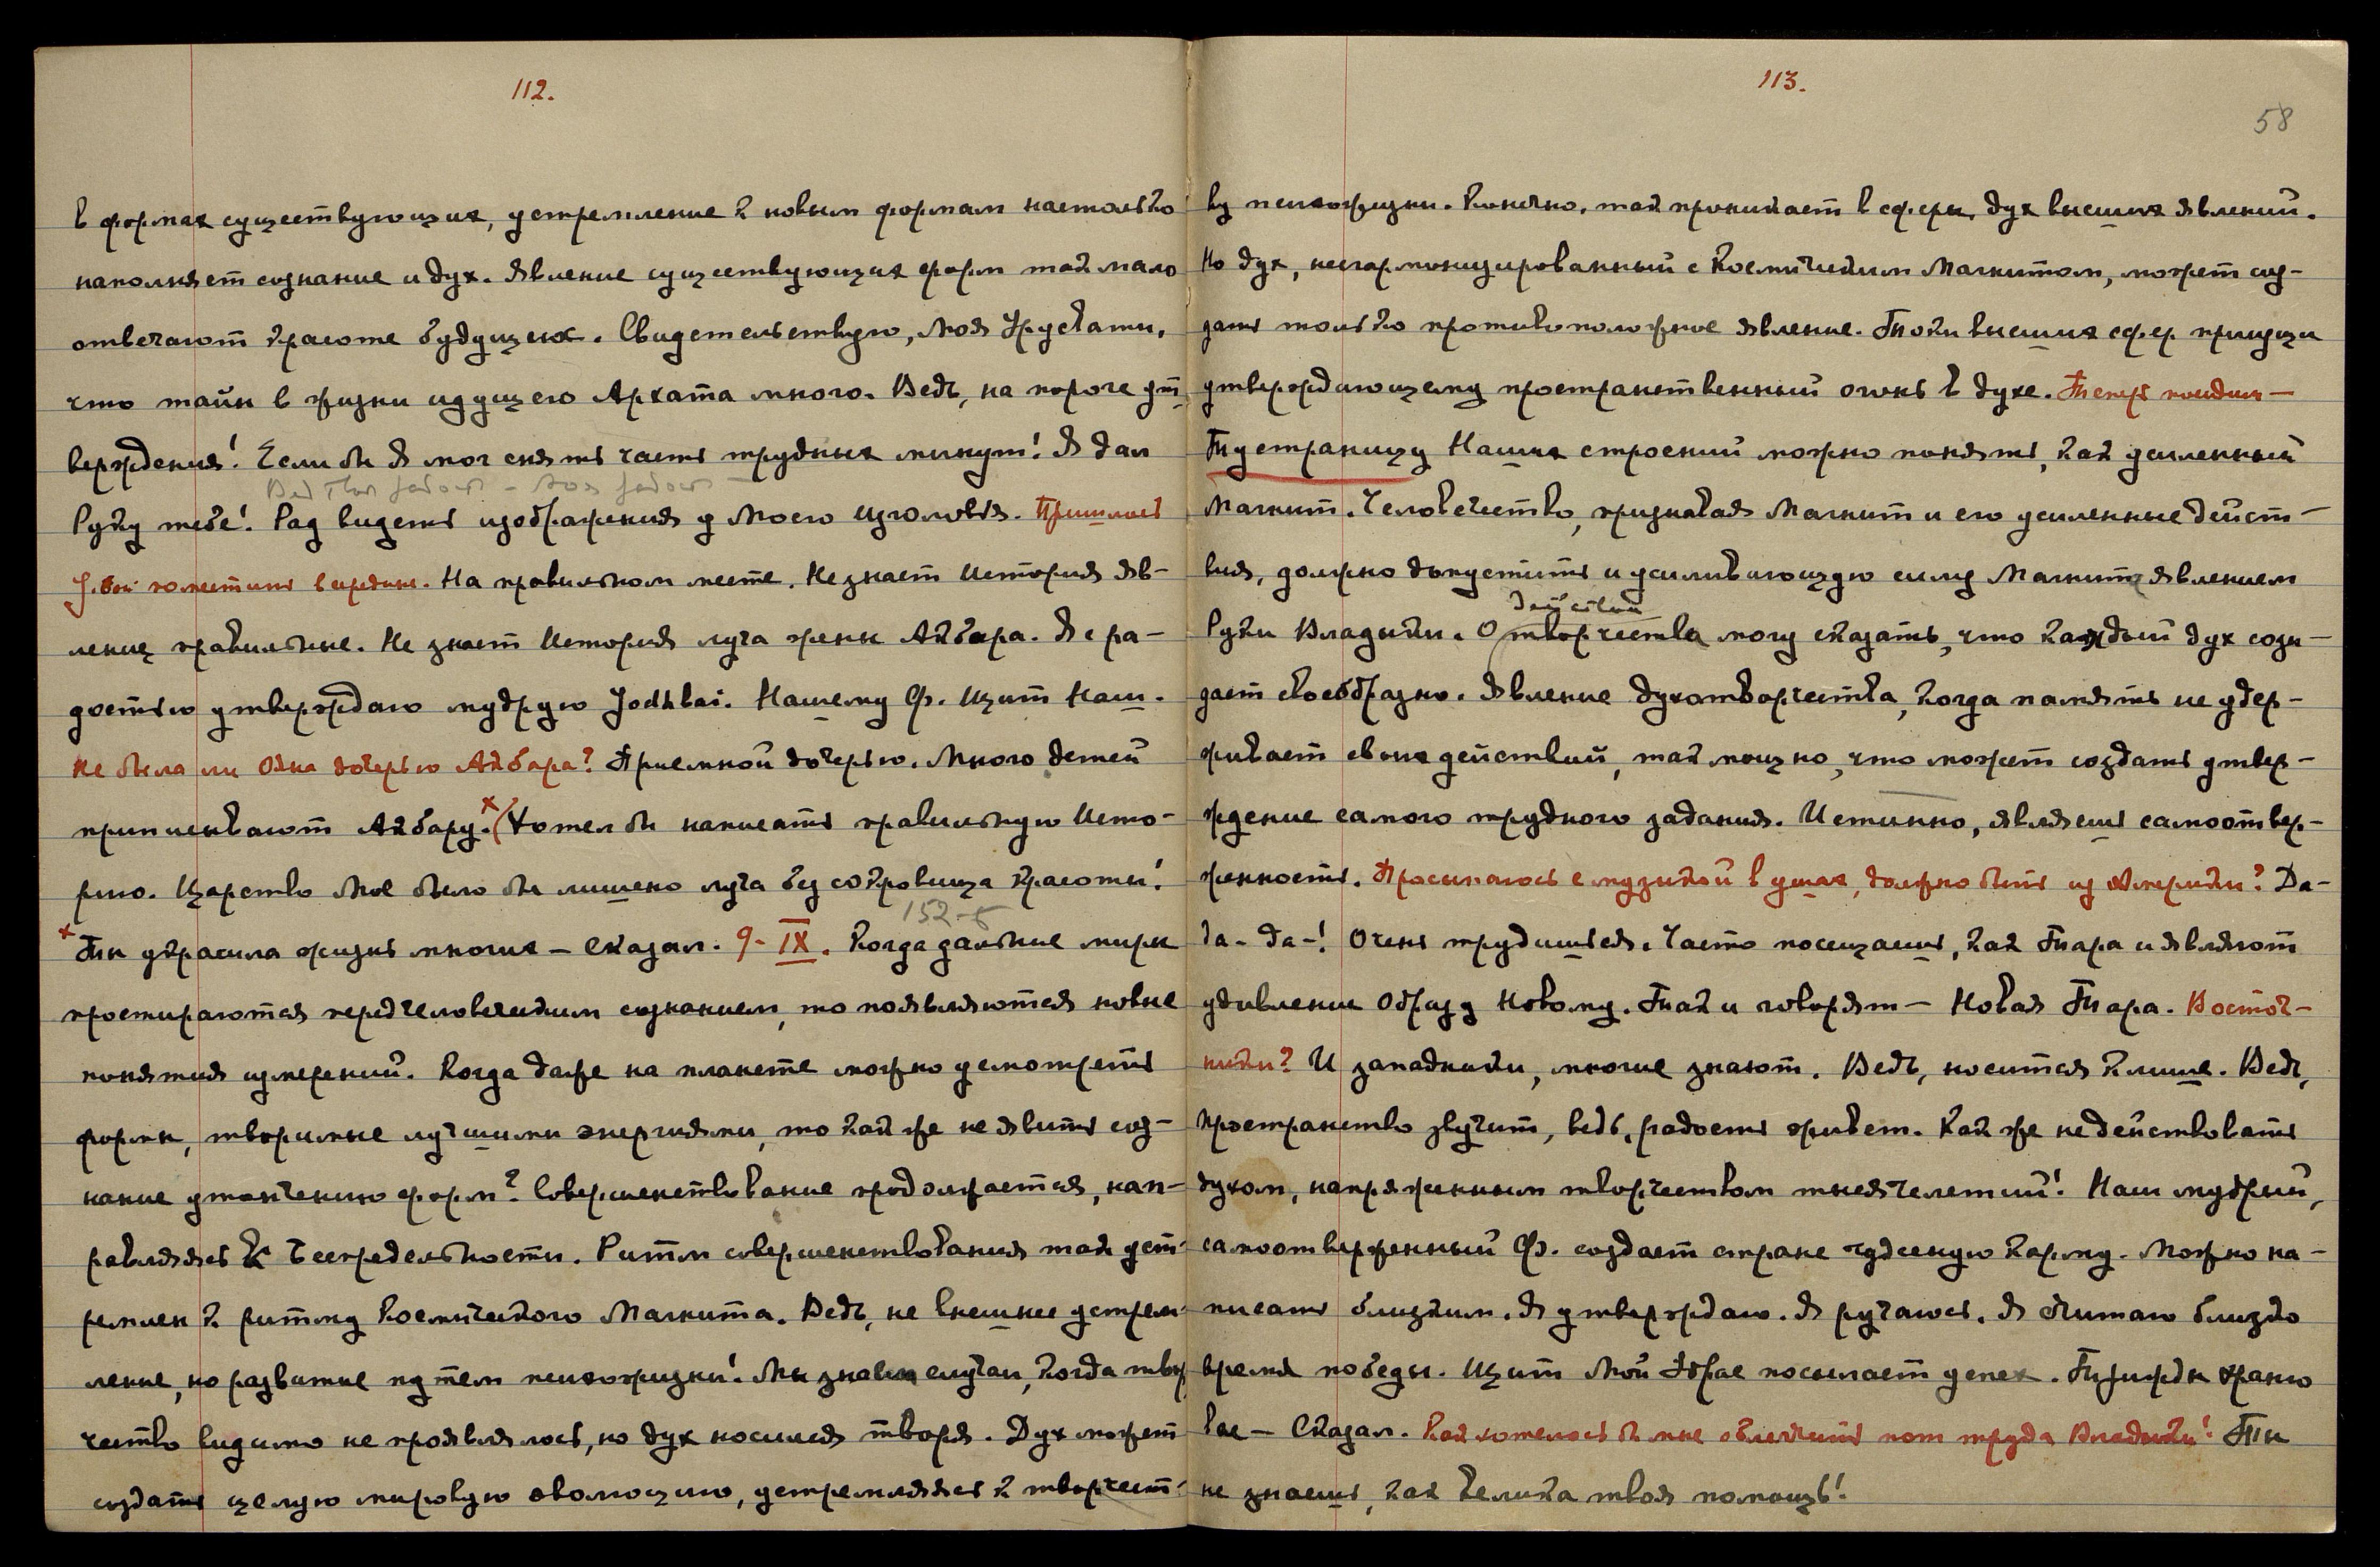 112.
в формах существующих, устремление к новым формам настолько
наполняет сознание и дух. Явление существующих форм так мало
отвечают красоте будущего. Свидетельствую, Моя Урусвати,
что тайн в жизни идущего Архата много. Ведь, на пороге ут-
верждения! Если бы Я мог снять часть трудных минут! Я дал
Вед твоя радость - Моя радость
Руку тебе! Рад видеть изображения у Моего изголовья. Пришлось
поместить в середине. На правильном месте. Не знает История яв-
ление правильные. Не знает История луча жены Акбара. Я с ра-
достью утверждаю мудрую Jodhbai. Нашему Ф. Щит Наш.
Не была ли Одна дочерью Акбара? Приемной дочерью. Много детей
приписывают Акбару. × (Хотел бы написать правильную Исто-
рию. Царство Мое было бы лишено луча без сокровища красоты!
152-
× Ты украсила жизнь многих – сказал. 9-IX. Когда дальние миры
простираются перед человеческим сознанием, то появляются новые
понятия измерений. Когда даже на планете можно усмотреть
формы, творимые лучшими энергиями, то как же не явить соз-
нание утончению форм? Совершенствование продолжается, нап-
равляясь к Беспредельности. Ритм совершенствования так уст-
ремлен к ритму Космического Магнита. Ведь, не внешнее устрем-
ление, но развитие путем психожизни! Мы знаем случаи, когда твор-
чество видимо не проявлялось, но дух носился творя. Дух может
создать целую мировую эволюцию, устремляясь к творчест-
113.
58
ву психожизни. Конечно, так проникает в сферы, дух высших явлений.
Но дух, несгармонизированный с Космическим Магнитом, может соз-
дать только противоположное явление. Токи высших сфер присущи
утверждающему пространственный огонь в духе. Теперь поидин-
Ту страницу Наших строений можно понять, как усиленный
Магнит. Человечество, признавая Магнит и его усиленные дейст-
вия, должно допустить и усиливающую силу Магнита явлением
действии
Руки Владыки. О творчестве могу сказать, что каждый дух созн-
дает своеобразно. Явление духотворчества, когда память не удер-
живает своих действий, так мощно, что может создать утвер-
ждение самого трудного задания. Истинно, являешь самоотвер-
женность. Просыпаюсь с музыкой в ушах, должно быть из Америки? Да-
да-да-! Очень трудишься. Часто посещаешь, как Тара и являют
удивление Образу Новому. Так и говорят – Новая Тара. Восточ-
ники? И западники, многие знают. Ведь, носится клише. Ведь,
пространство звучит, ведь, радость живет. Как же не действовать
духом, напряженным творчеством тысячелетий! Наш мудрый,
самоотверженный Ф. создает стране чудесную карму. Можно на-
писать близким. Я утверждаю. Я ручаюсь. Я считаю близко
время победы. Щит Мой Удрае посылает успех. Трижды храню
вас – Сказал. Как хотелось бы мне облегчить пот труда Владыки! Ты
не знаешь, как велика твоя помощь!